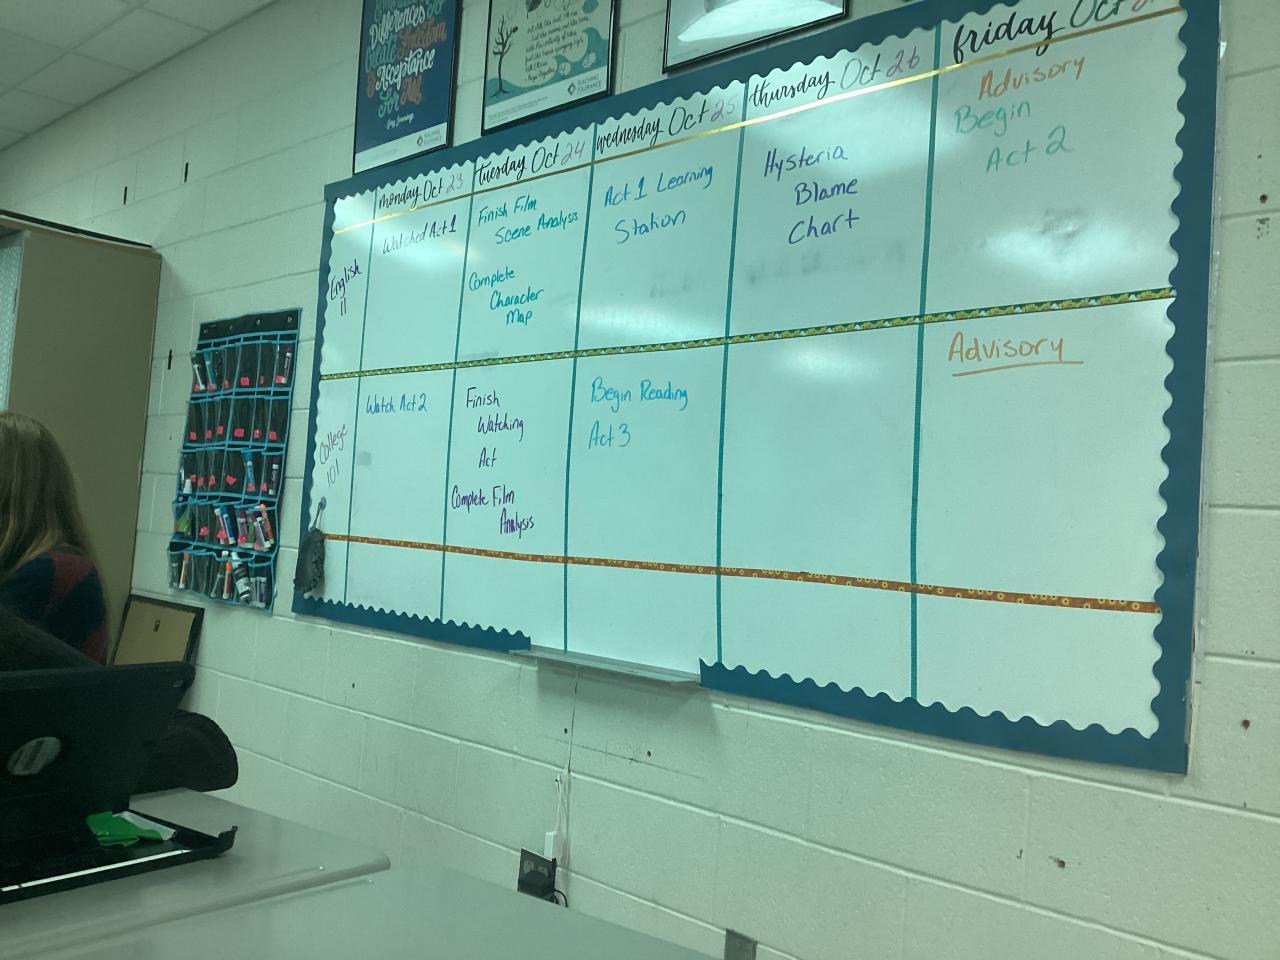 Differences
Create Freedom
Acceptance
For All
TEACHING
TOLERANCE
TEACHING
TOLERANCE
monday Oct 23
tuesday Oct 24
wednesday Oct 25
thursday Oct 26
friday Oct
English
11
Watched Act 1
Finish Film
Scene Analysis
Complete
Character
Map
Act 1 Learning
Station
Hysteria
Blame
Chart
Advisory
Begin
Act 2
College
101
Watch Act 2
Finish
Watching
Act
Complete Film
Analysis
Begin Reading
Act 3
Advisory